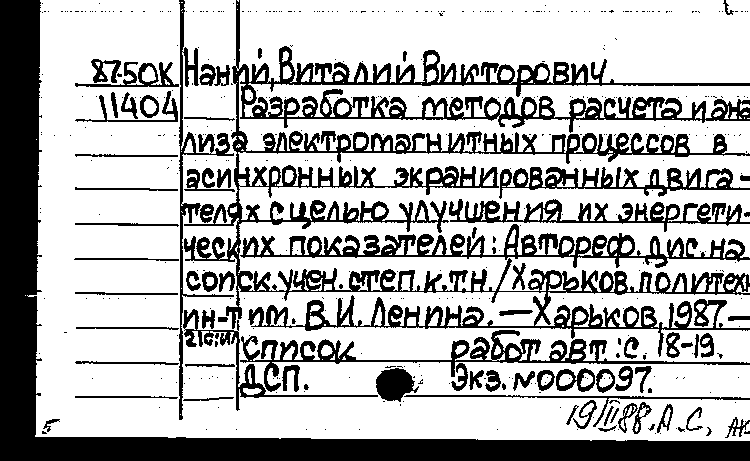 87-50К Наний, Виталий Викторович.
11404 Разработка методов расчета и ана
лиза электромагнитных процессов в
асинхронных экранированных двига-
телях с целью улучшения их энергети-
ческих показателей: Автореф. дис. на
соиск. учен. степ. к.т.н. / Харьков. политехн
ин-т им. В.И. Ленина. — Харьков, 1987. —
21с; ил список работ авт.: с. 18-19.
ДСП. Экз. №000097.
19/II 88. А.С,
5